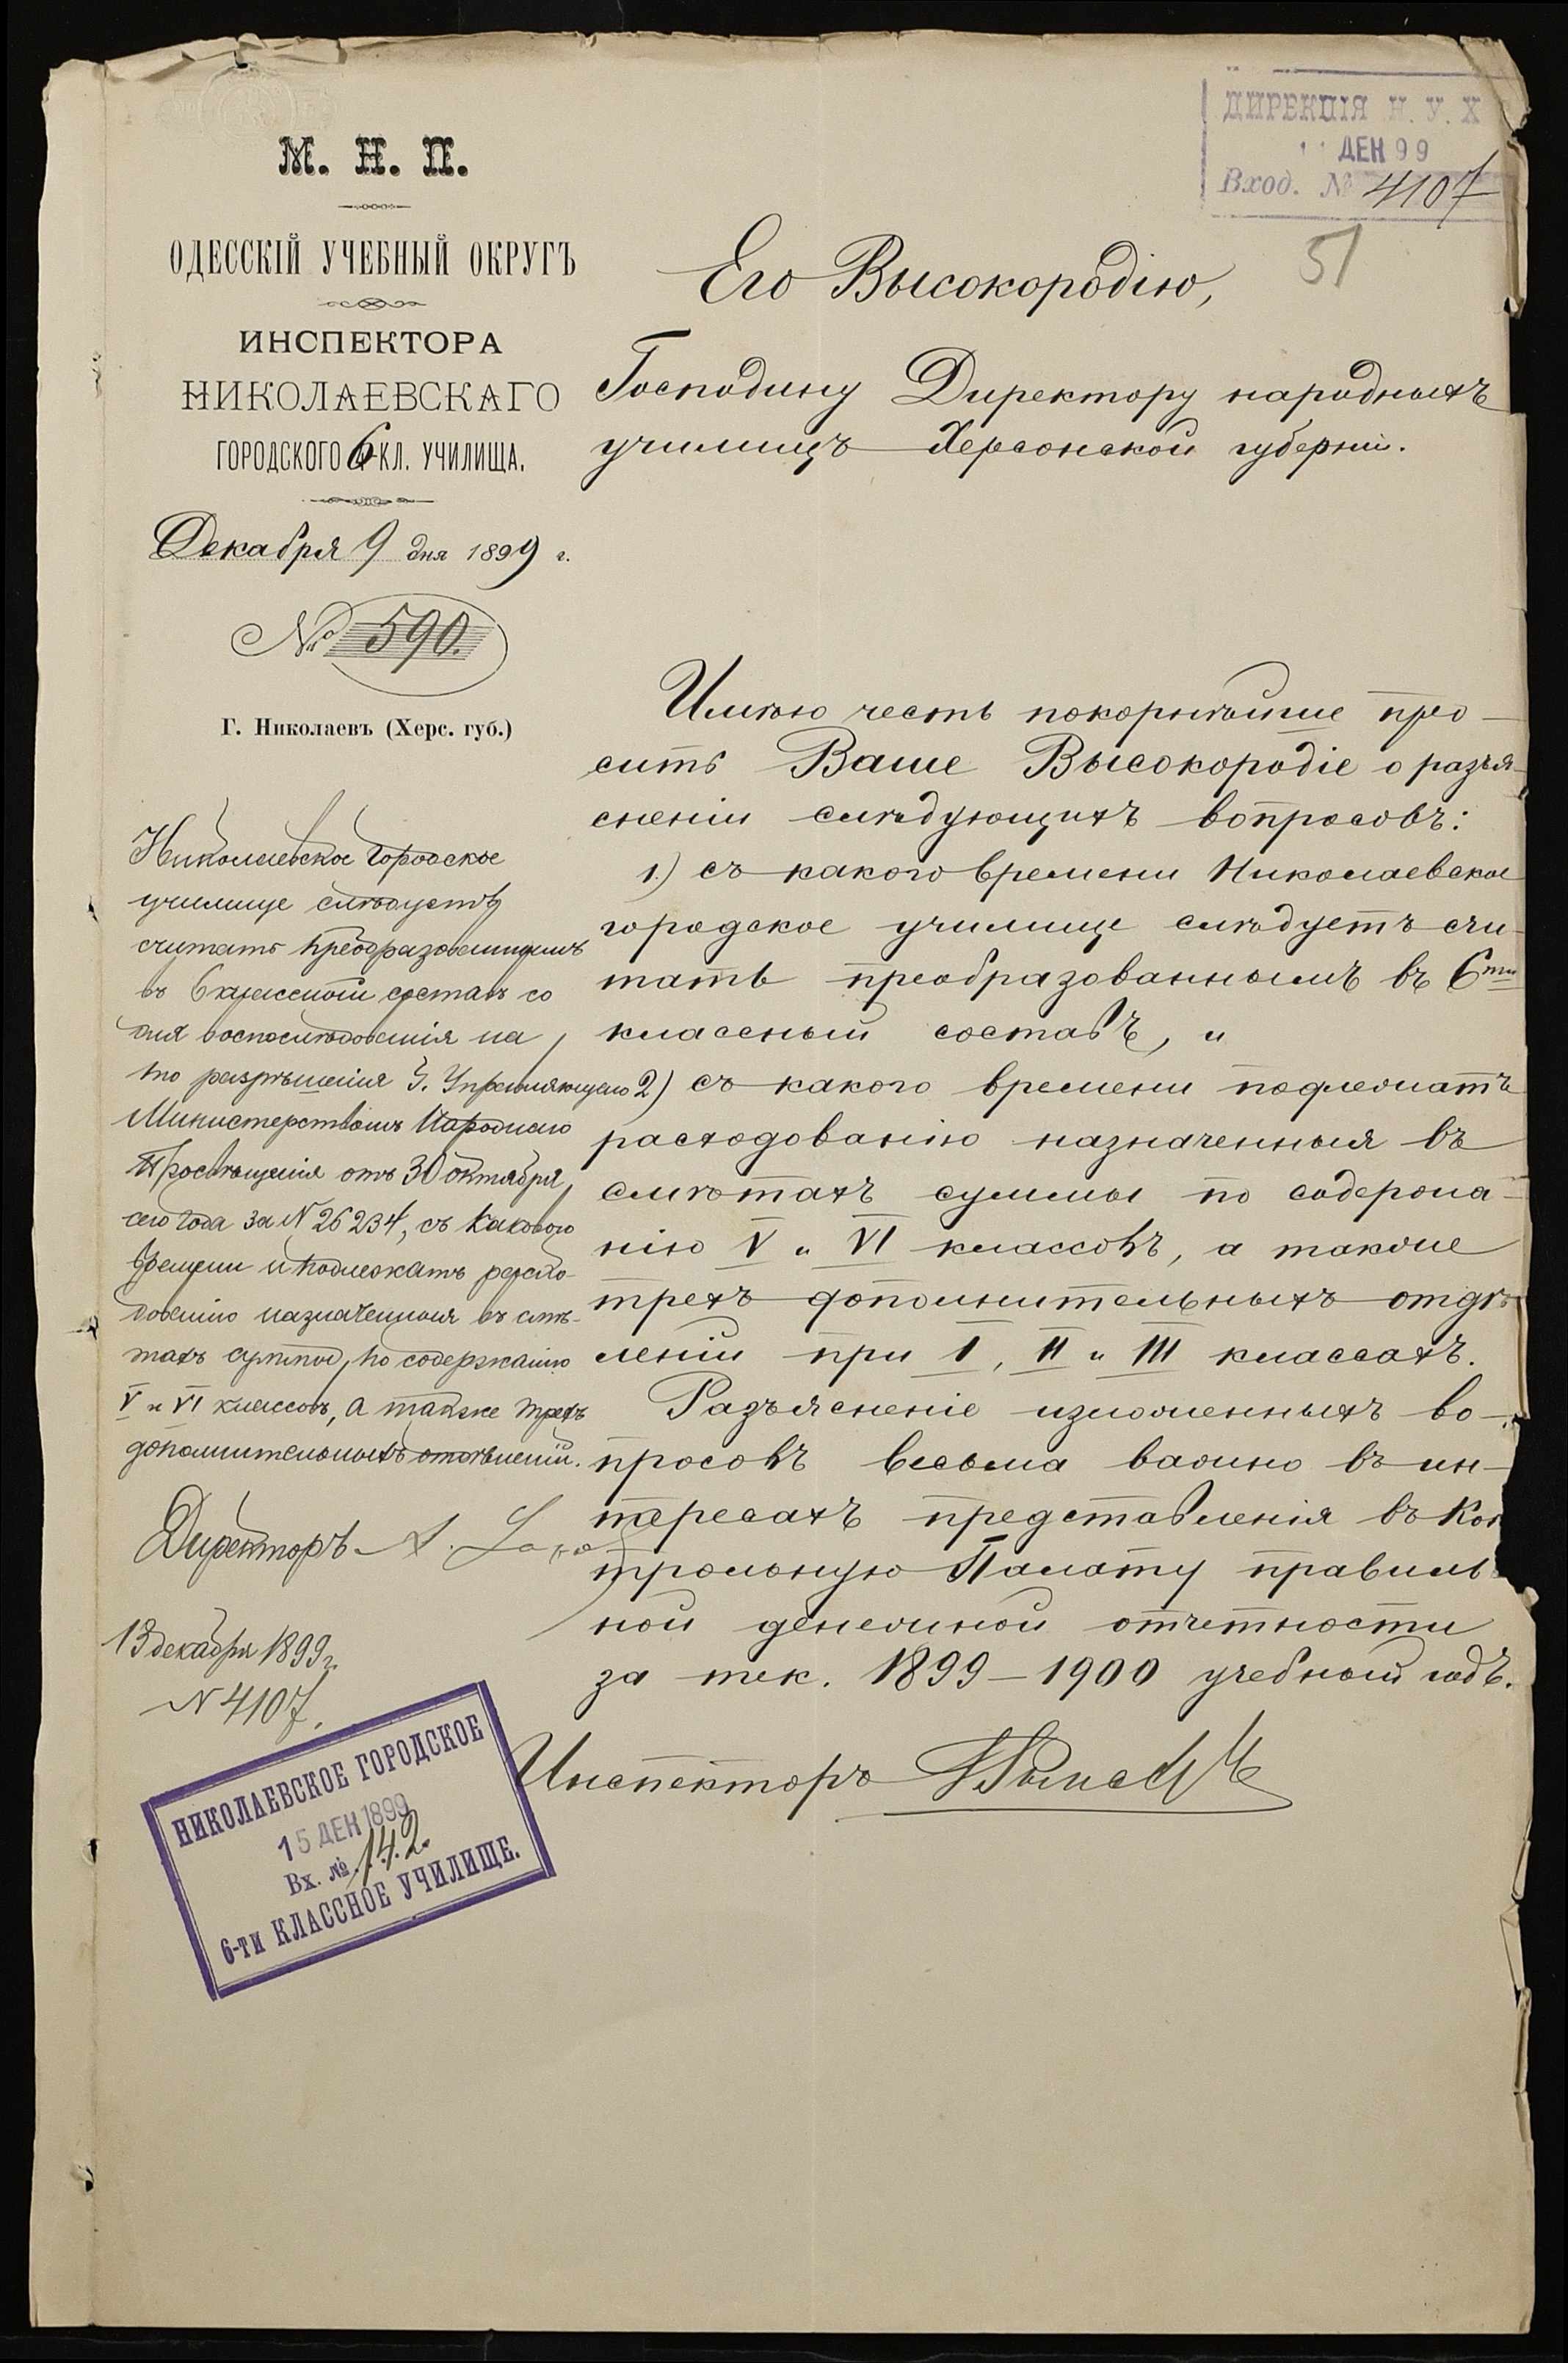 М. Н. П.
ОДЕССКІЙ УЧЕБНЫЙ ОКРУГЪ
ИНСПЕКТОРА
НИКОЛАЕВСКАГО
ГОРОДСКОГО 6 КЛ. УЧИЛИЩА.
Декабря 9 дня 1899 г.
№ 590.
Г. Николаевъ (Херс. губ.)
ДИРЕКЦІЯ Н. У. Х
ДЕН 99
Вход. № 4107
51
Его Высокородію,
Господину Директору народныхъ
училищъ Херсонской губерніи.
Имѣю честь покорнѣйше про-
сить Ваше Высокородіе о разъя-
сненіи слѣдующихъ вопросовъ:
1.) съ какого времени Николаевское
городское училище слѣдуетъ счи-
тать преобразованнымъ въ 6ти
классный составъ, и
2) съ какого времени подлежатъ
расходованію назначенныя въ
смѣтахъ суммы по содержа-
нію V и VI классовъ, а также
трехъ дополнительныхъ отдѣ-
леній при I, II и III классахъ.
Разъясненіе изложенныхъ во-
просовъ весьма важно въ ин-
тересахъ представленія въ Кон
трольную Палату правиль
ной денежной отчетности
за тек. 1899–1900 учебный годъ.
Инспекторъ
Николаевское городское
училище слѣдуетъ
считать преобразованнымъ
въ 6 классный составъ со
дня воспослѣдованія на
то разрѣшенія Г. Управляющаго
Министерствомъ Народнаго
Просвѣщенія отъ 30 октября
сего года за № 26234, съ какового
времени и подлежатъ расхо-
дованію назначенныя въ смѣ-
тахъ суммы, по содержанію
V и VI классовъ, а также трехъ
дополнительныхъ отдѣленій.
Директоръ А.
13 декабря 1899 г.
№ 4107.
НИКОЛАЕВСКОЕ ГОРОДСКОЕ
15 ДЕН 1899
Вх. № 142.
6-ти КЛАССНОЕ УЧИЛИЩЕ.